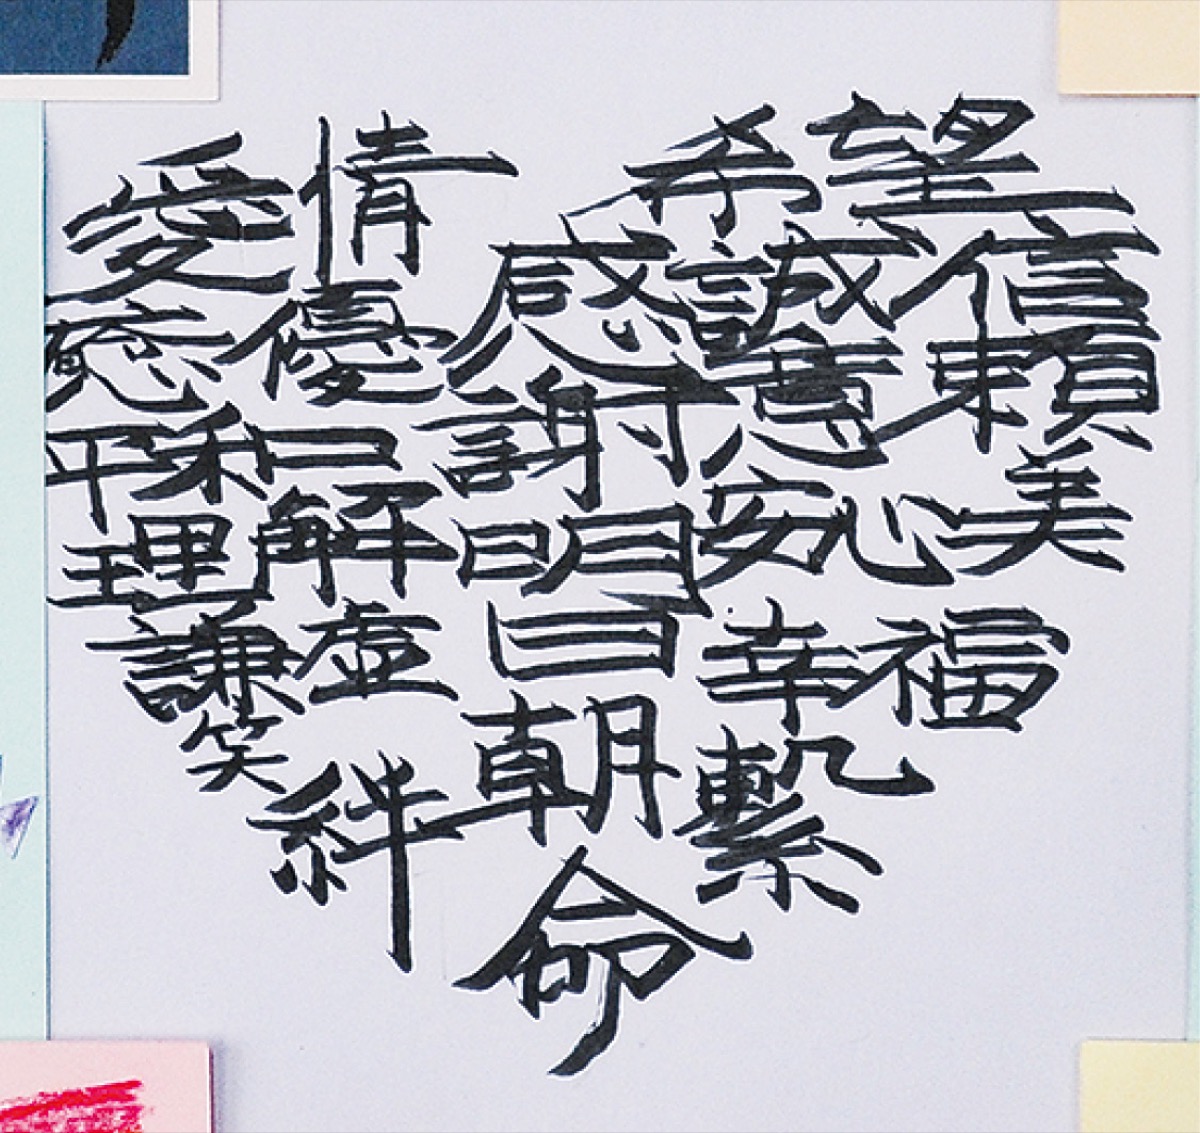 愛情
希望
癒
優
感謝
誠意
信頼
平和
理解
明日
安心
美
謙虚
幸福
笑
絆
朝
繋
命